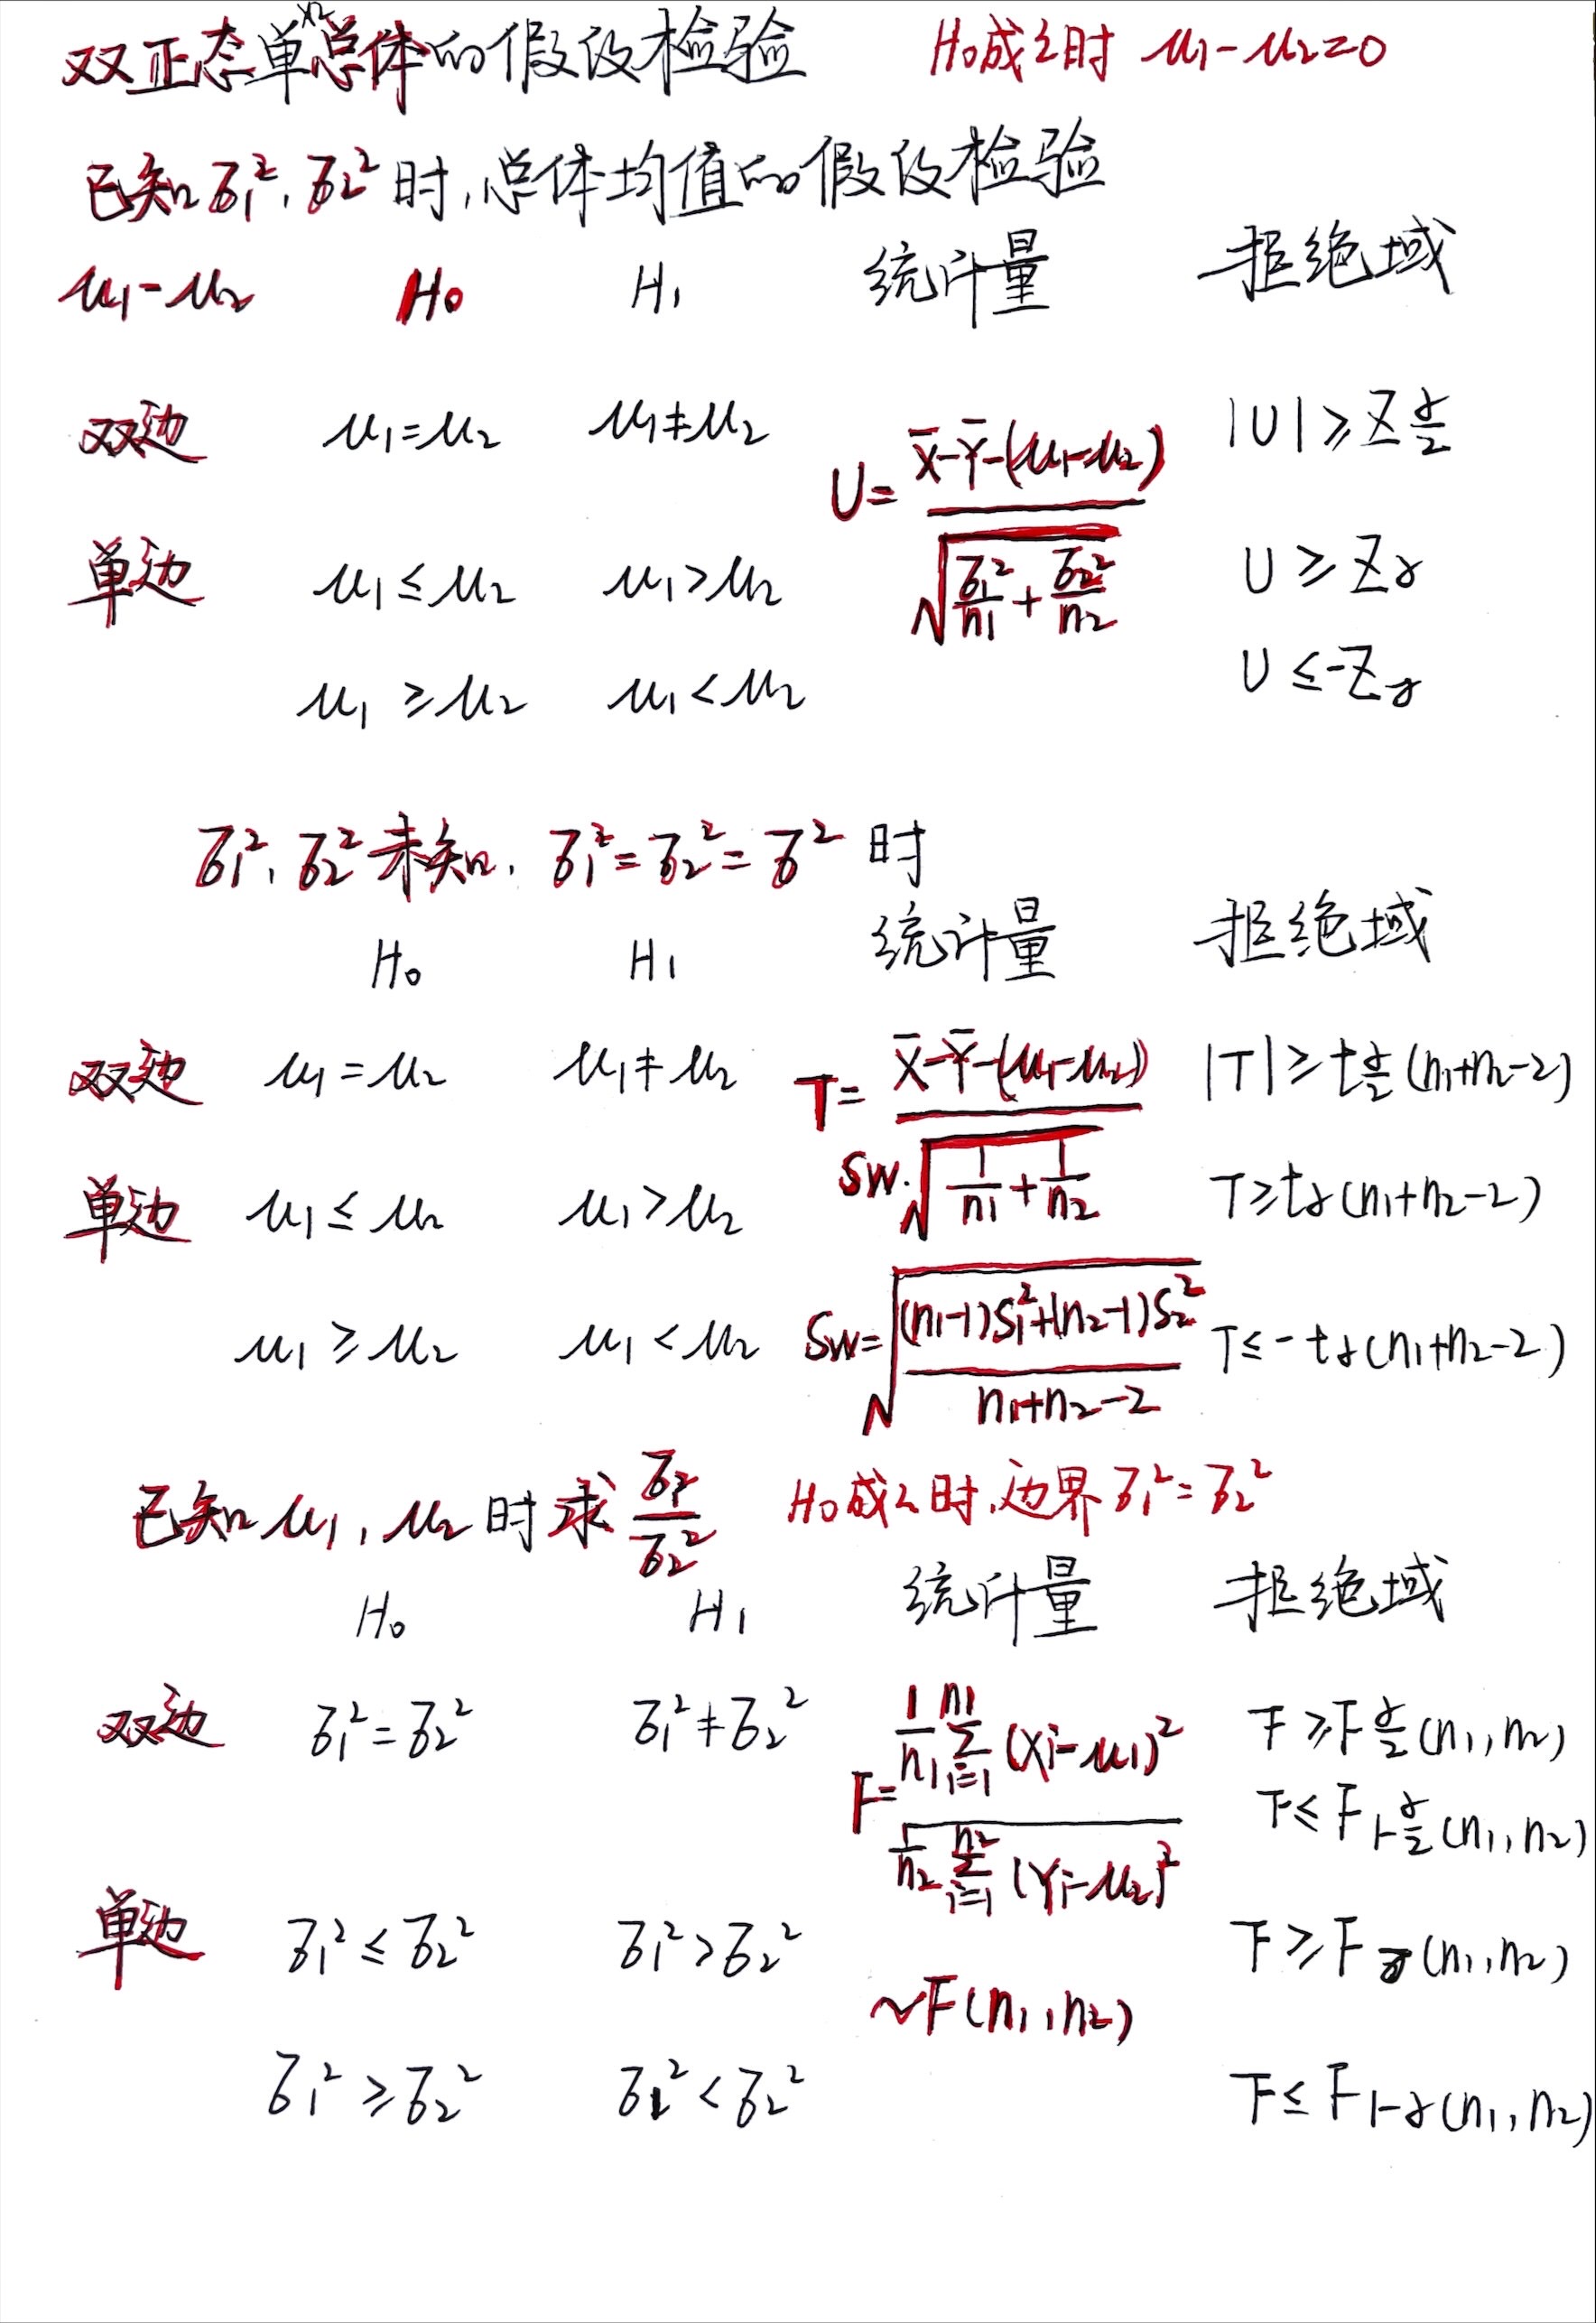 双正态单总体的假设检验 H₀成立时 μ₁-μ₂=0
已知σ₁²,σ₂²时,总体均值的假设检验
μ₁-μ₂ H₀ H₁ 统计量 拒绝域
双边 μ₁=μ₂ μ₁≠μ₂ U=(X̄-Ȳ-(μ₁-μ₂))/√(σ₁²/n₁+σ₂²/n₂) |U|≥Z α/2
单边 μ₁≤μ₂ μ₁>μ₂ U≥Zα
μ₁≥μ₂ μ₁<μ₂ U≤-Zα
σ₁²,σ₂²未知,σ₁²=σ₂²=σ²时
H₀ H₁ 统计量 拒绝域
双边 μ₁=μ₂ μ₁≠μ₂ T=(X̄-Ȳ-(μ₁-μ₂))/(Sw·√(1/n₁+1/n₂)) |T|≥t α/2 (n₁+n₂-2)
单边 μ₁≤μ₂ μ₁>μ₂ T≥tα(n₁+n₂-2)
μ₁≥μ₂ μ₁<μ₂ Sw=√(((n₁-1)S₁²+(n₂-1)S₂²)/(n₁+n₂-2)) T≤-tα(n₁+n₂-2)
已知μ₁,μ₂时求 σ₁²/σ₂² H₀成立时,边界σ₁²=σ₂²
H₀ H₁ 统计量 拒绝域
双边 σ₁²=σ₂² σ₁²≠σ₂² F=(1/n₁ Σᵢ₌₁ⁿ¹(Xi-μ₁)²)/(1/n₂ Σᵢ₌₁ⁿ²(Yi-μ₂)²) F≥F α/2 (n₁,n₂)
F≤F 1-α/2 (n₁,n₂)
单边 σ₁²≤σ₂² σ₁²>σ₂² ~F(n₁,n₂) F≥Fα(n₁,n₂)
σ₁²≥σ₂² σ₁²<σ₂² F≤F 1-α (n₁,n₂)